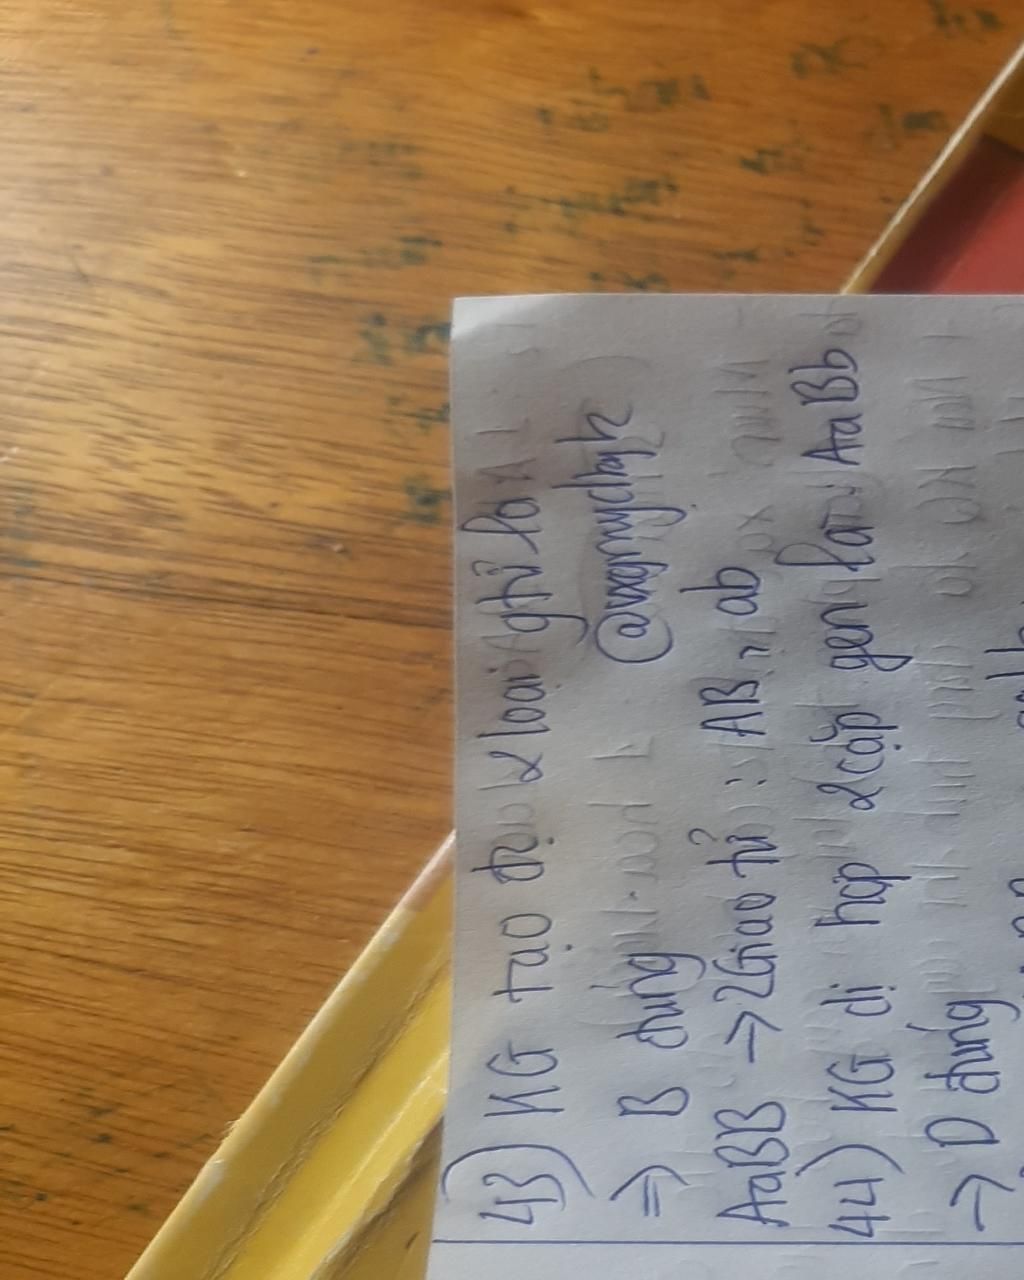 43) KG tạo được 2 loại gtử là
@vxgmyclhyh
⇒ B đúng
AaBB → 2Giao tử : AB, ab
44) KG dị hợp 2 cặp gen là: AaBb
→ D đúng